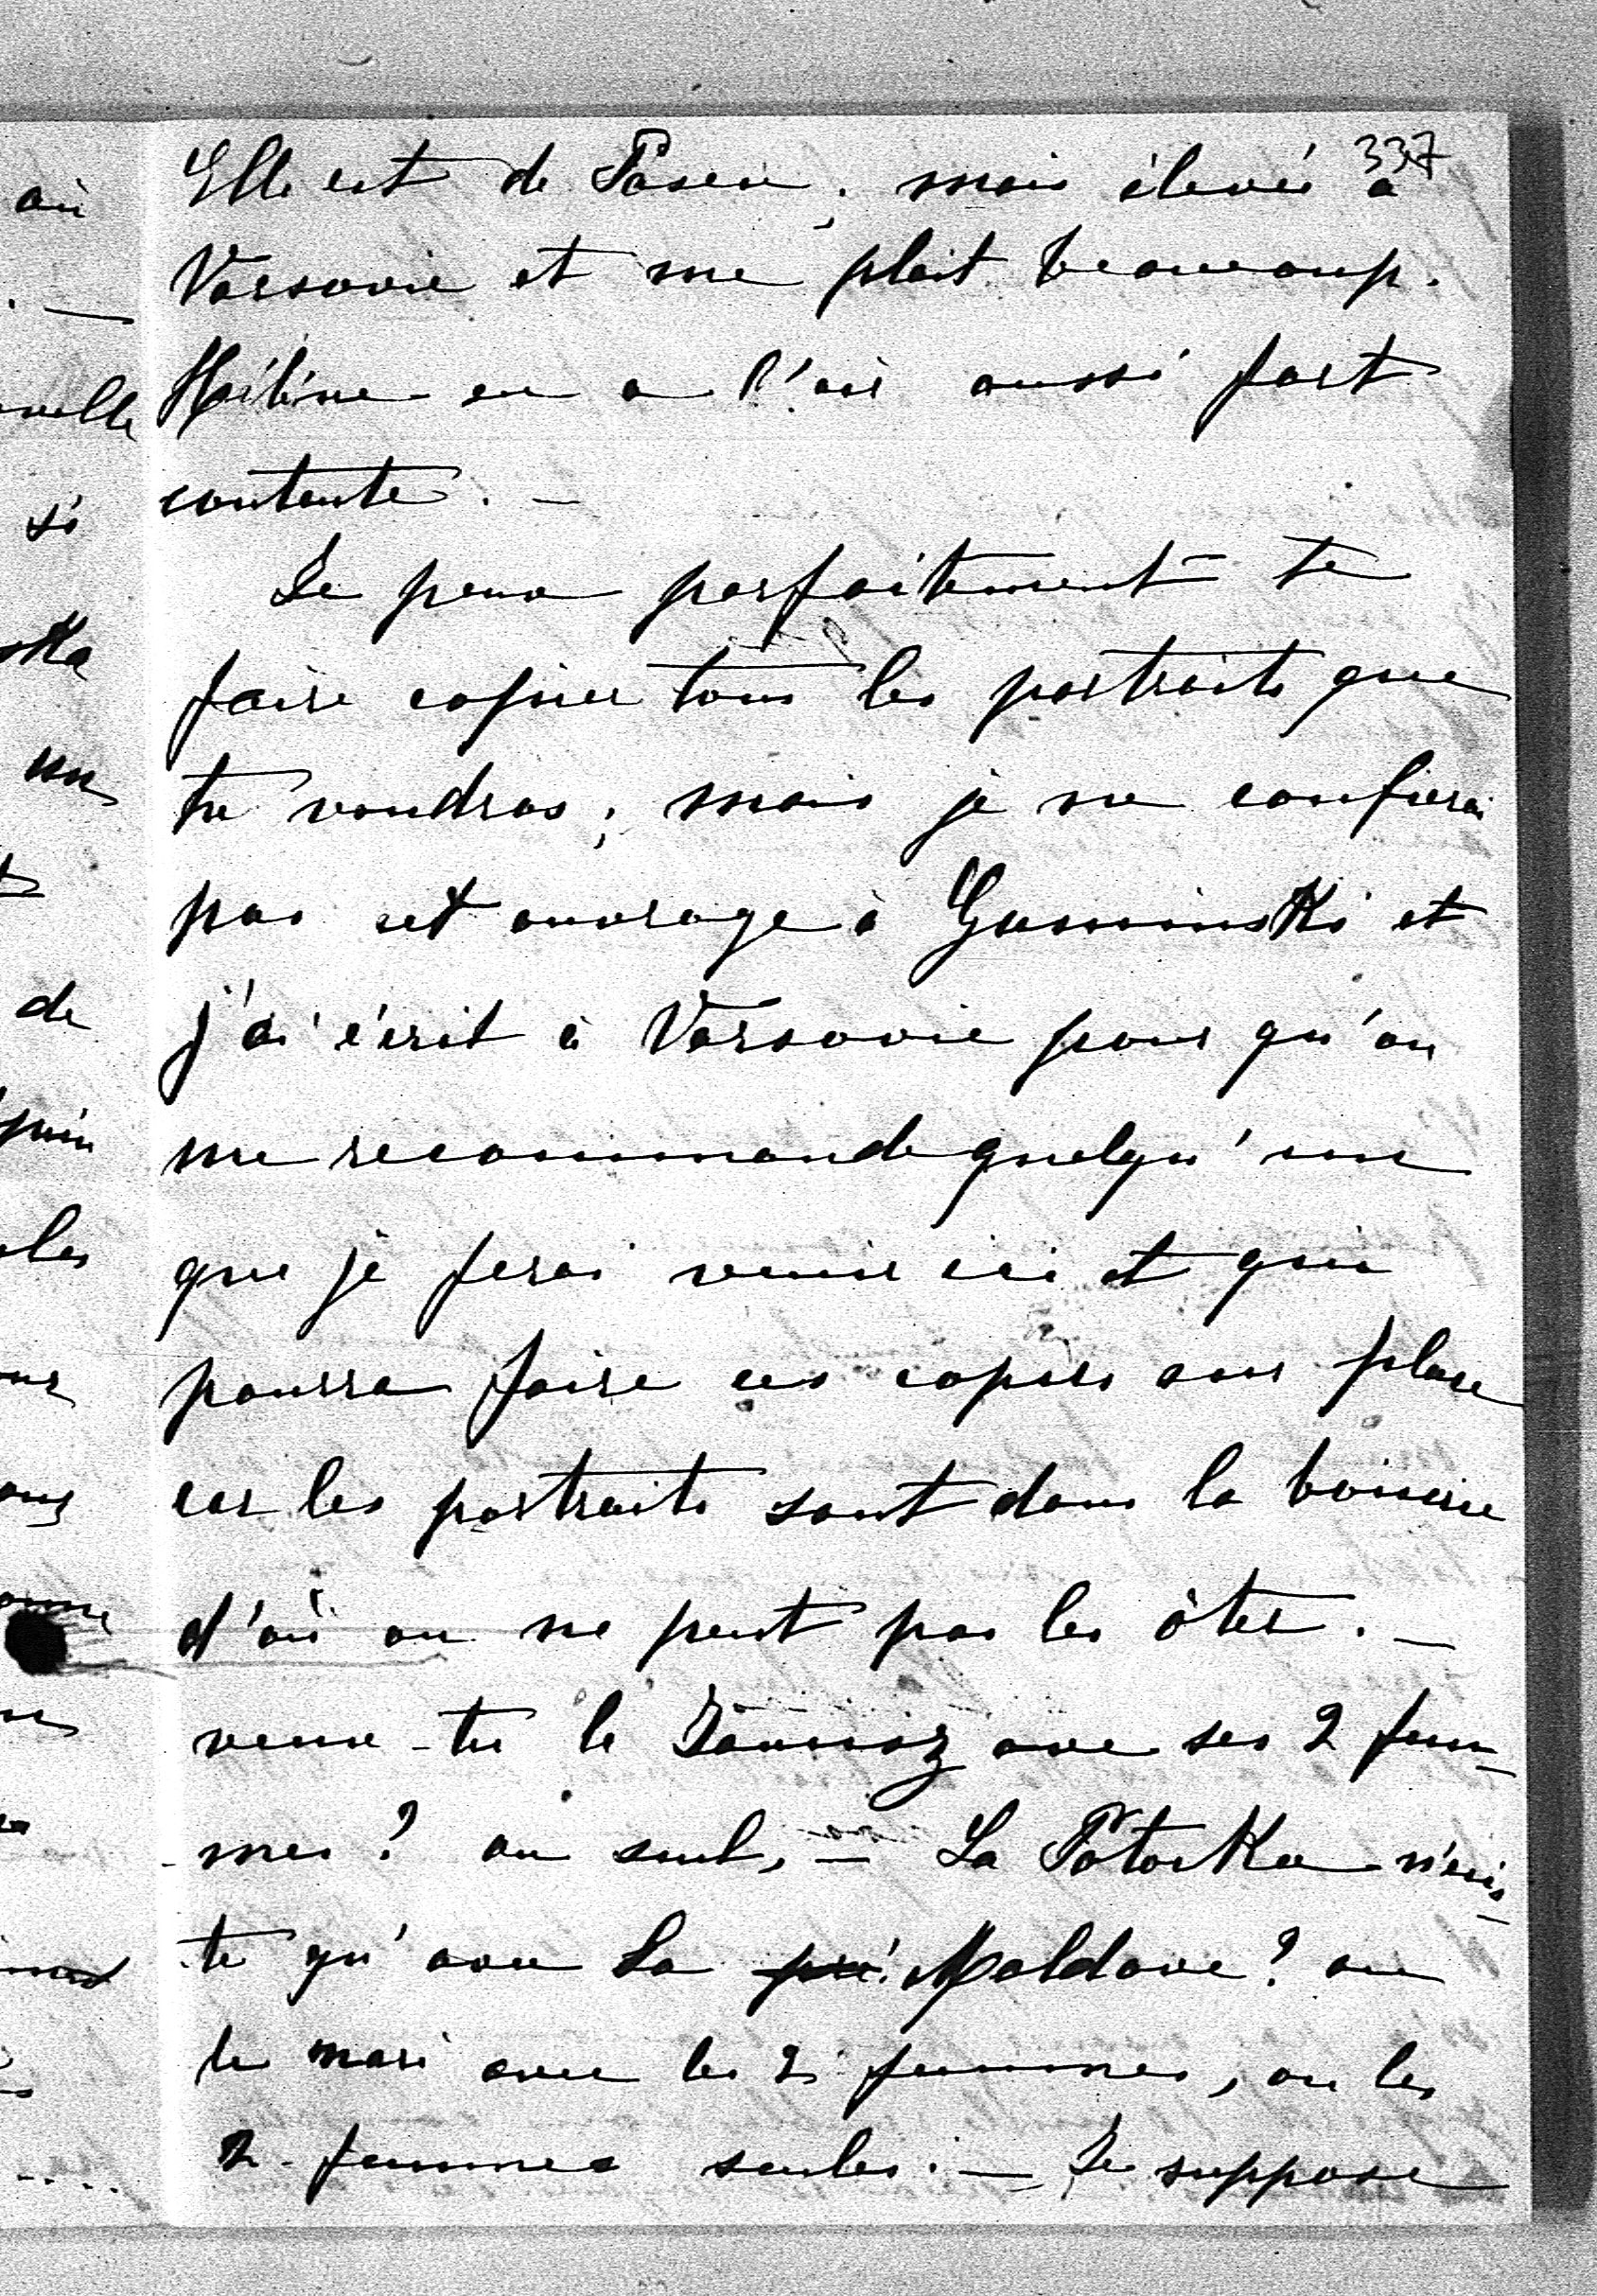 337
Elle est de Posen; mais élevée à
Varsovie et me plait beaucoup.
Hélène en a l'air aussi fort
contente. —
Je peux parfaitement te
faire copier tous les portraits que
tu voudras; mais je ne confierai
pas cet ouvrage à et
j'ai écrit à Varsovie pour qu'on
me recommande quelqu'un
que je ferai venir ici et qui
pourra faire ces copies sur place
car les portraits sont dans la boiserie
d'où on ne peut pas les ôter. —
veux-tu le avec ses 2 fem-
-mes? ou seul, — La Potocka n'exis-
te qu'avec la Moldave? ou
le mari avec les 2 femmes, ou les
2 femmes seules. — Je suppose
où
si
un
de